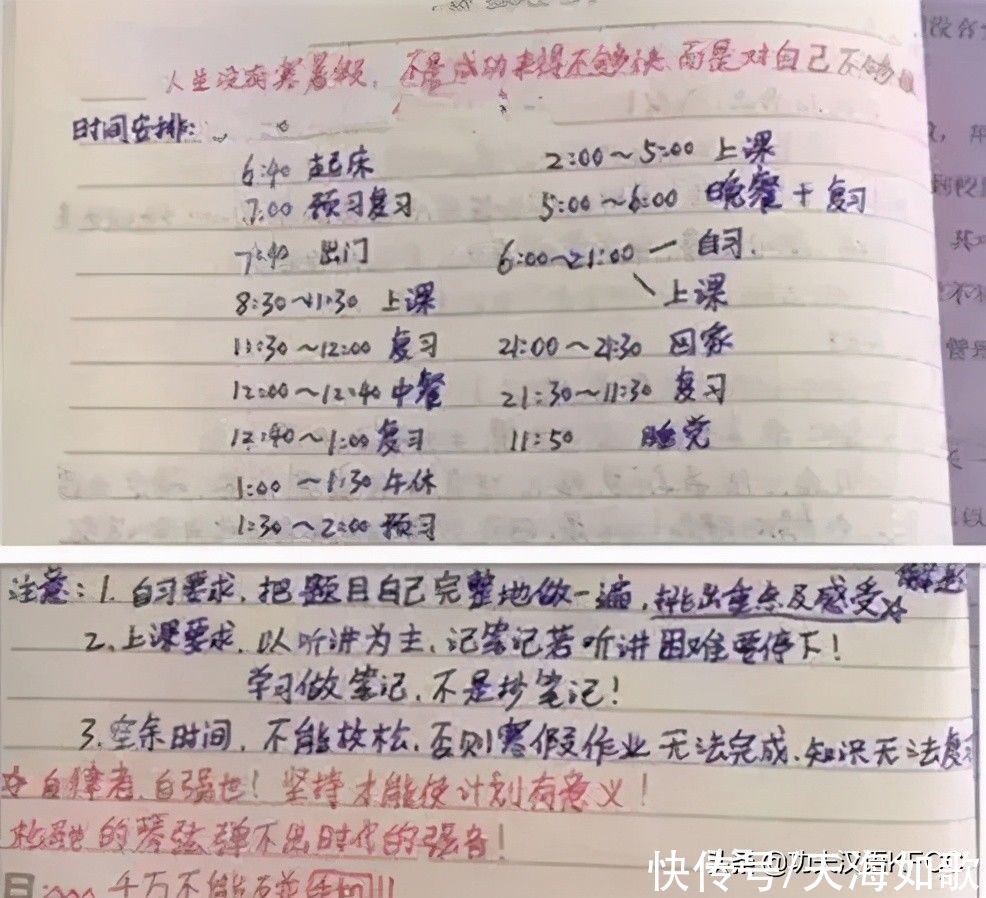 人生没有寒暑假，不是成功来得不够快，而是对自己不够
时间安排：
6:40 起床
7:00 预习复习
7:40 出门
8:30~11:30 上课
11:30~12:00 复习
12:00~12:40 中餐
12:40~1:00 复习
1:00~1:30 午休
1:30~2:00 预习
2:00~5:00 上课
5:00~6:00 晚餐+复习
6:00~21:00 — 自习.
上课
21:00~21:30 回家
21:30~11:30 复习
11:50 睡觉
注意：1. 自习要求，把题目自己完整地做一遍，挑出重点及感受
2. 上课要求，以听讲为主，记笔记若听讲困难要停下！
学习做笔记，不是抄笔记！
3. 空余时间，不能放松，否则寒假作业无法完成，知识无法复
自律者，自强也！坚持才能使计划有意义！
松弛的琴弦弹不出时代的强音！
千万不能
头条 @功夫汉语
快传号/大海如歌